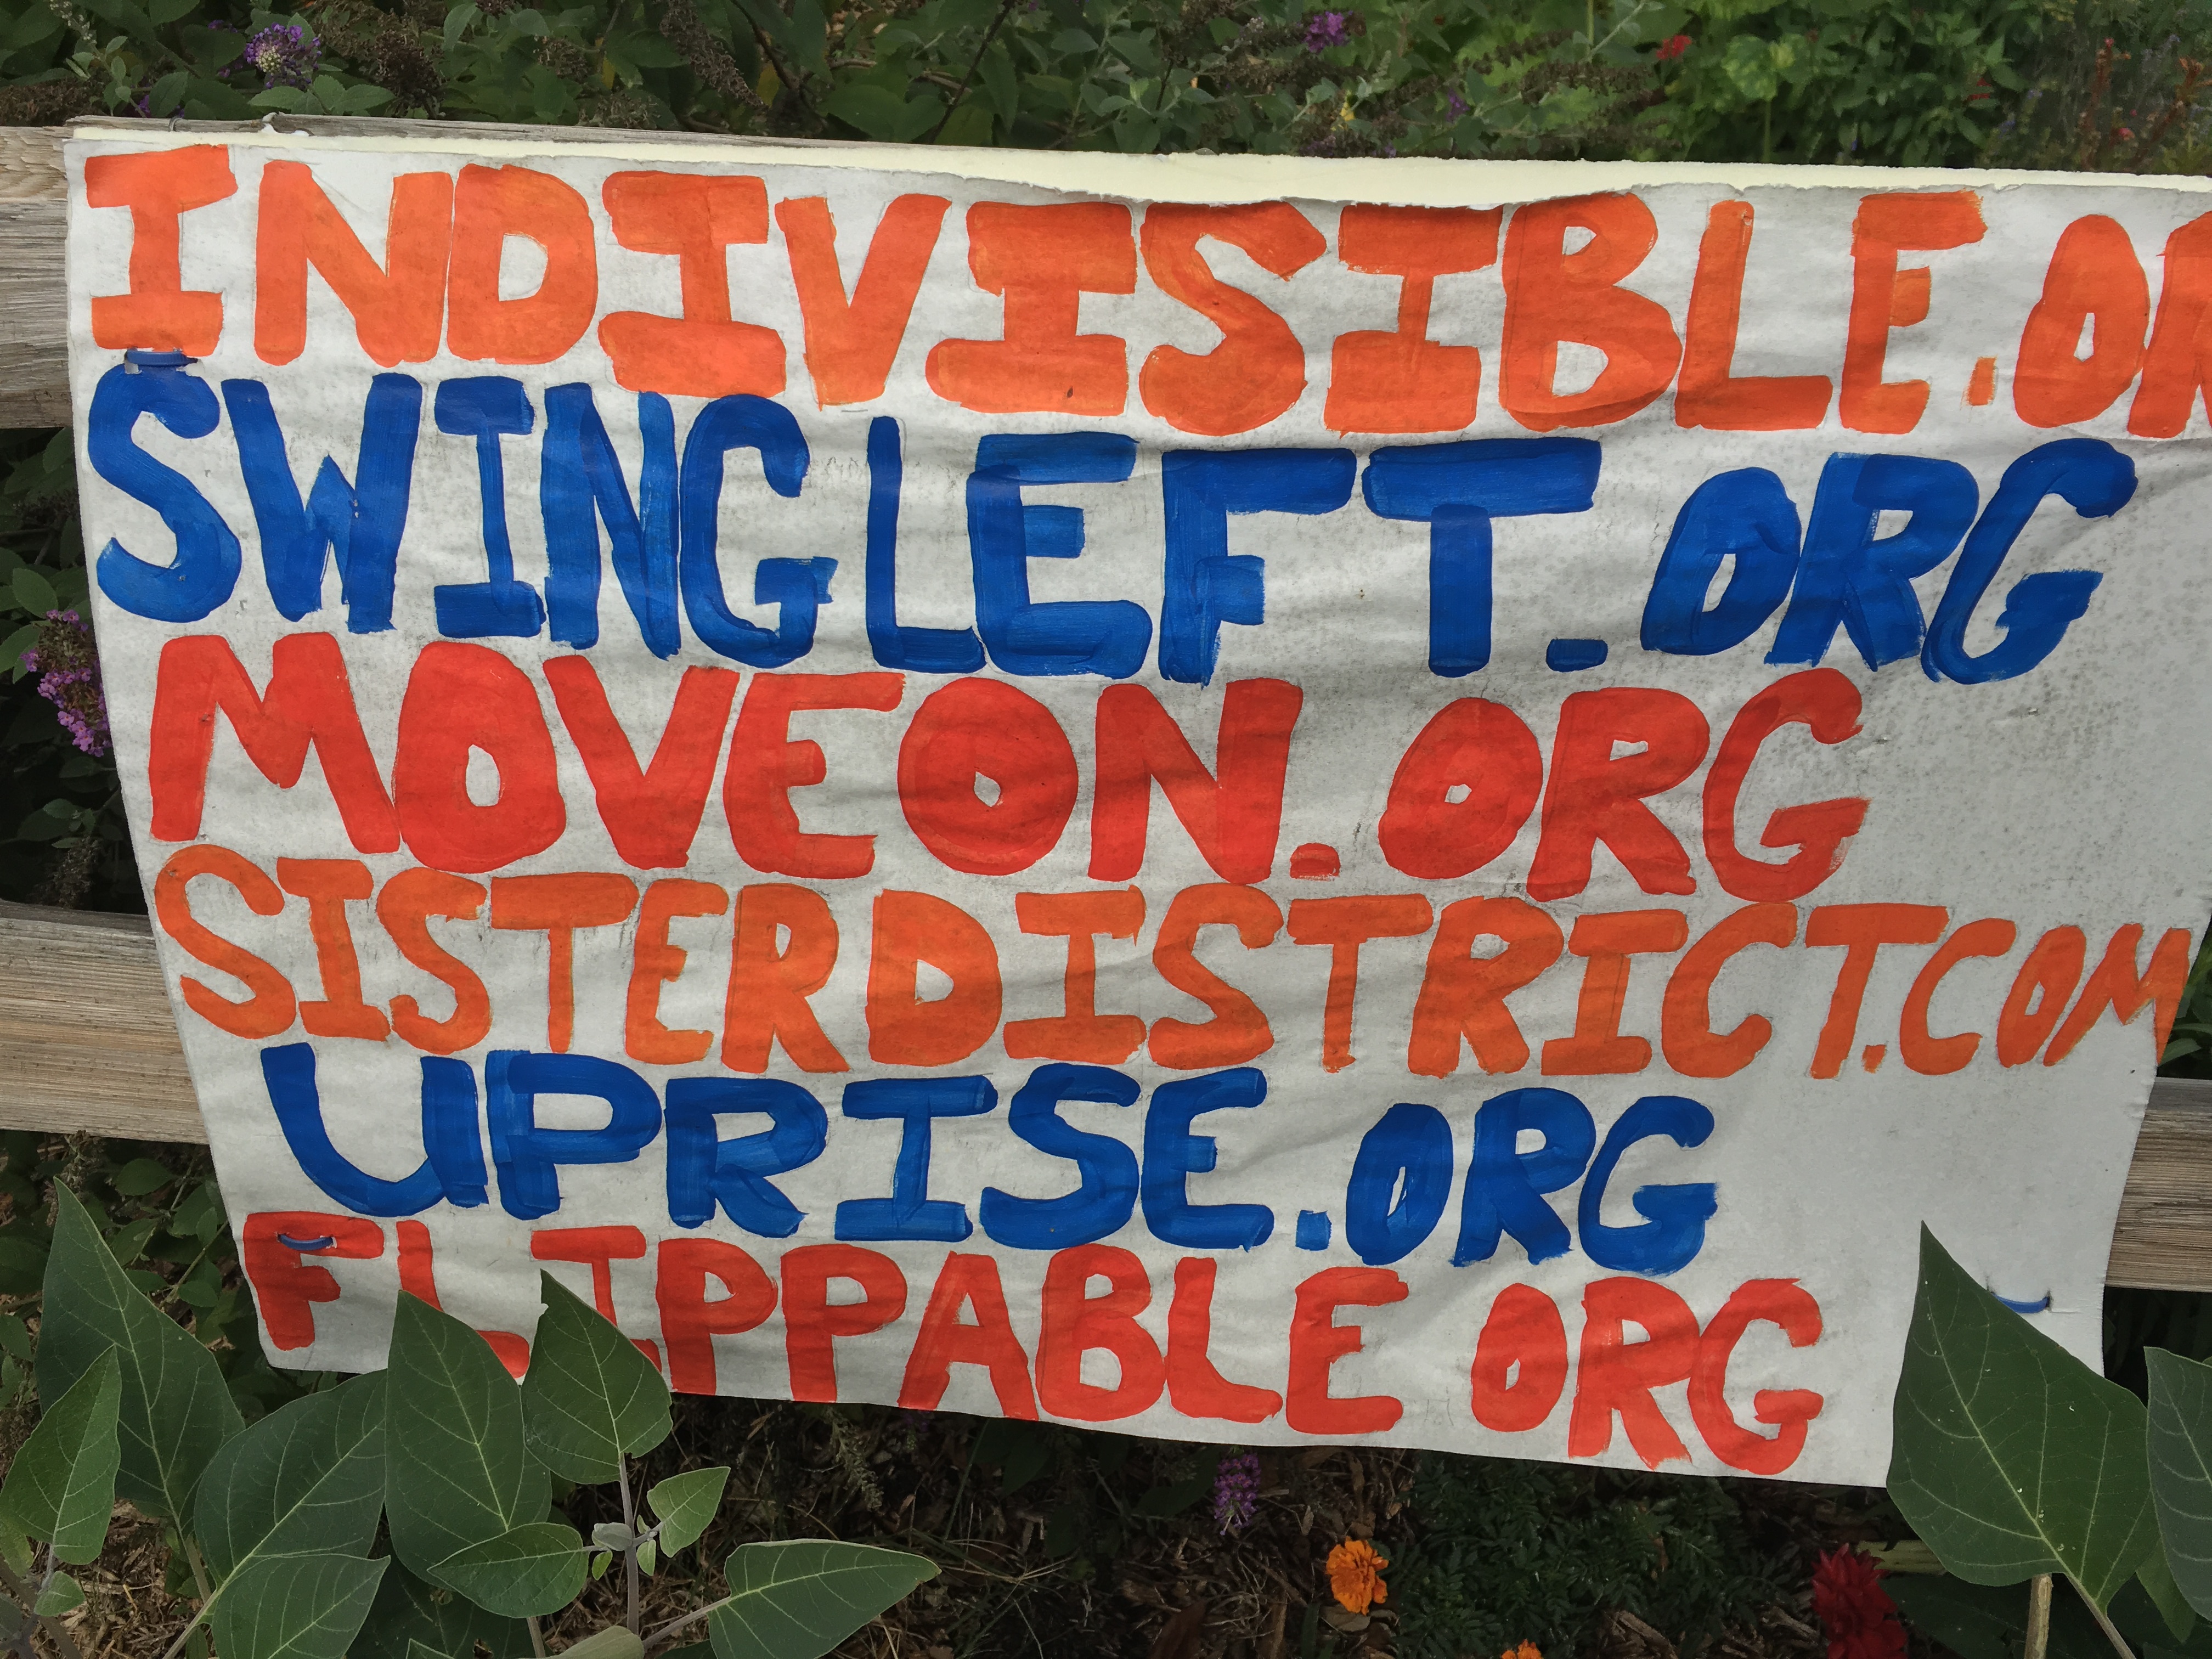 INDIVISIBLE.OR
SWINGLEFT.ORG
MOVEON.ORG
SISTERDISTRICT.COM
UPRISE.ORG
FLIPPABLE ORG